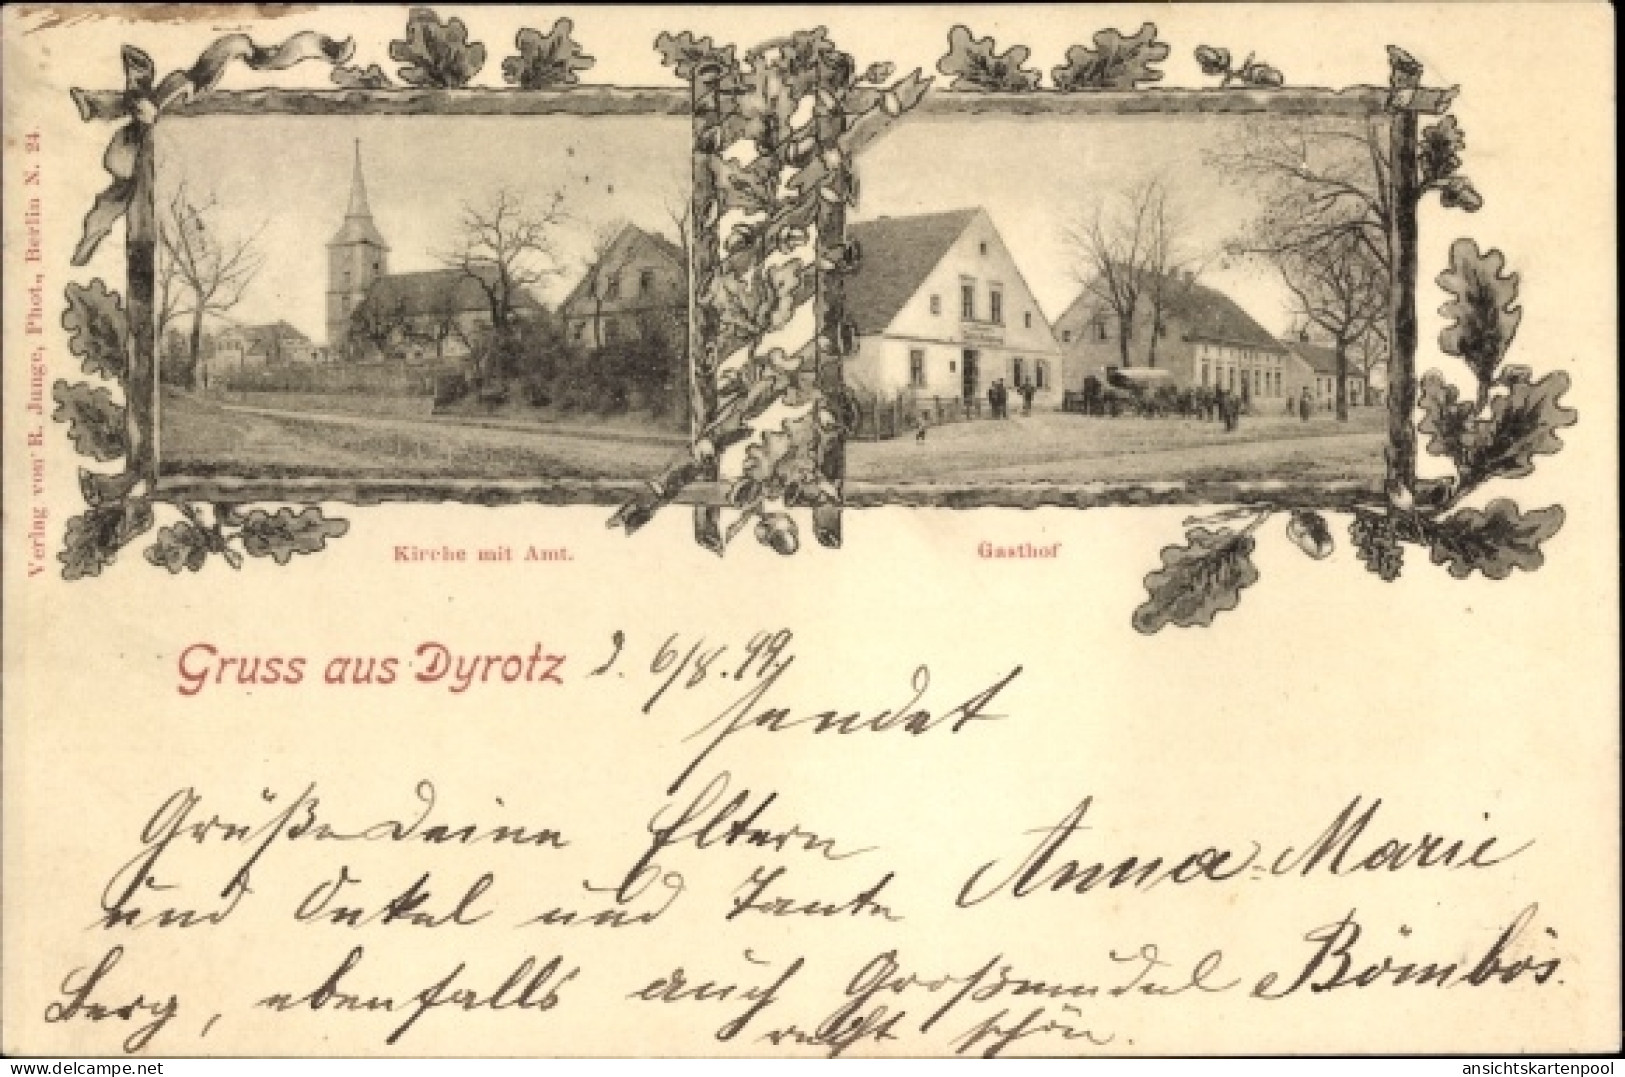 Verlag von R. Junge, Phot., Berlin N. 24.
Kirche mit Amt.
Gasthof
Gruss aus Dyrotz d. 6/8.99
sendet
Grüße Deine Eltern
und Onkel und Tante
Anna-Marie
Berg, ebenfalls auch Großmudel
Bömbös.
recht schön.
delcampe.net
ansichtskartenpool